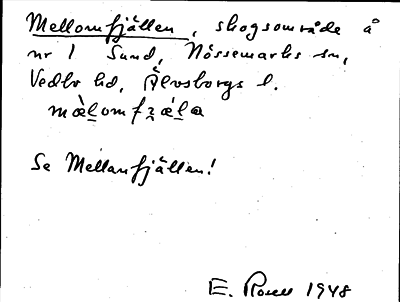 Mellomfjällen, skogsområde å
nr 1 Sund, Nössemarks sn,
Vedbo hd, Älvsborgs l.
mæ̀lomfʒǽla
Se Mellanfjällen!
E. Rosell 1948